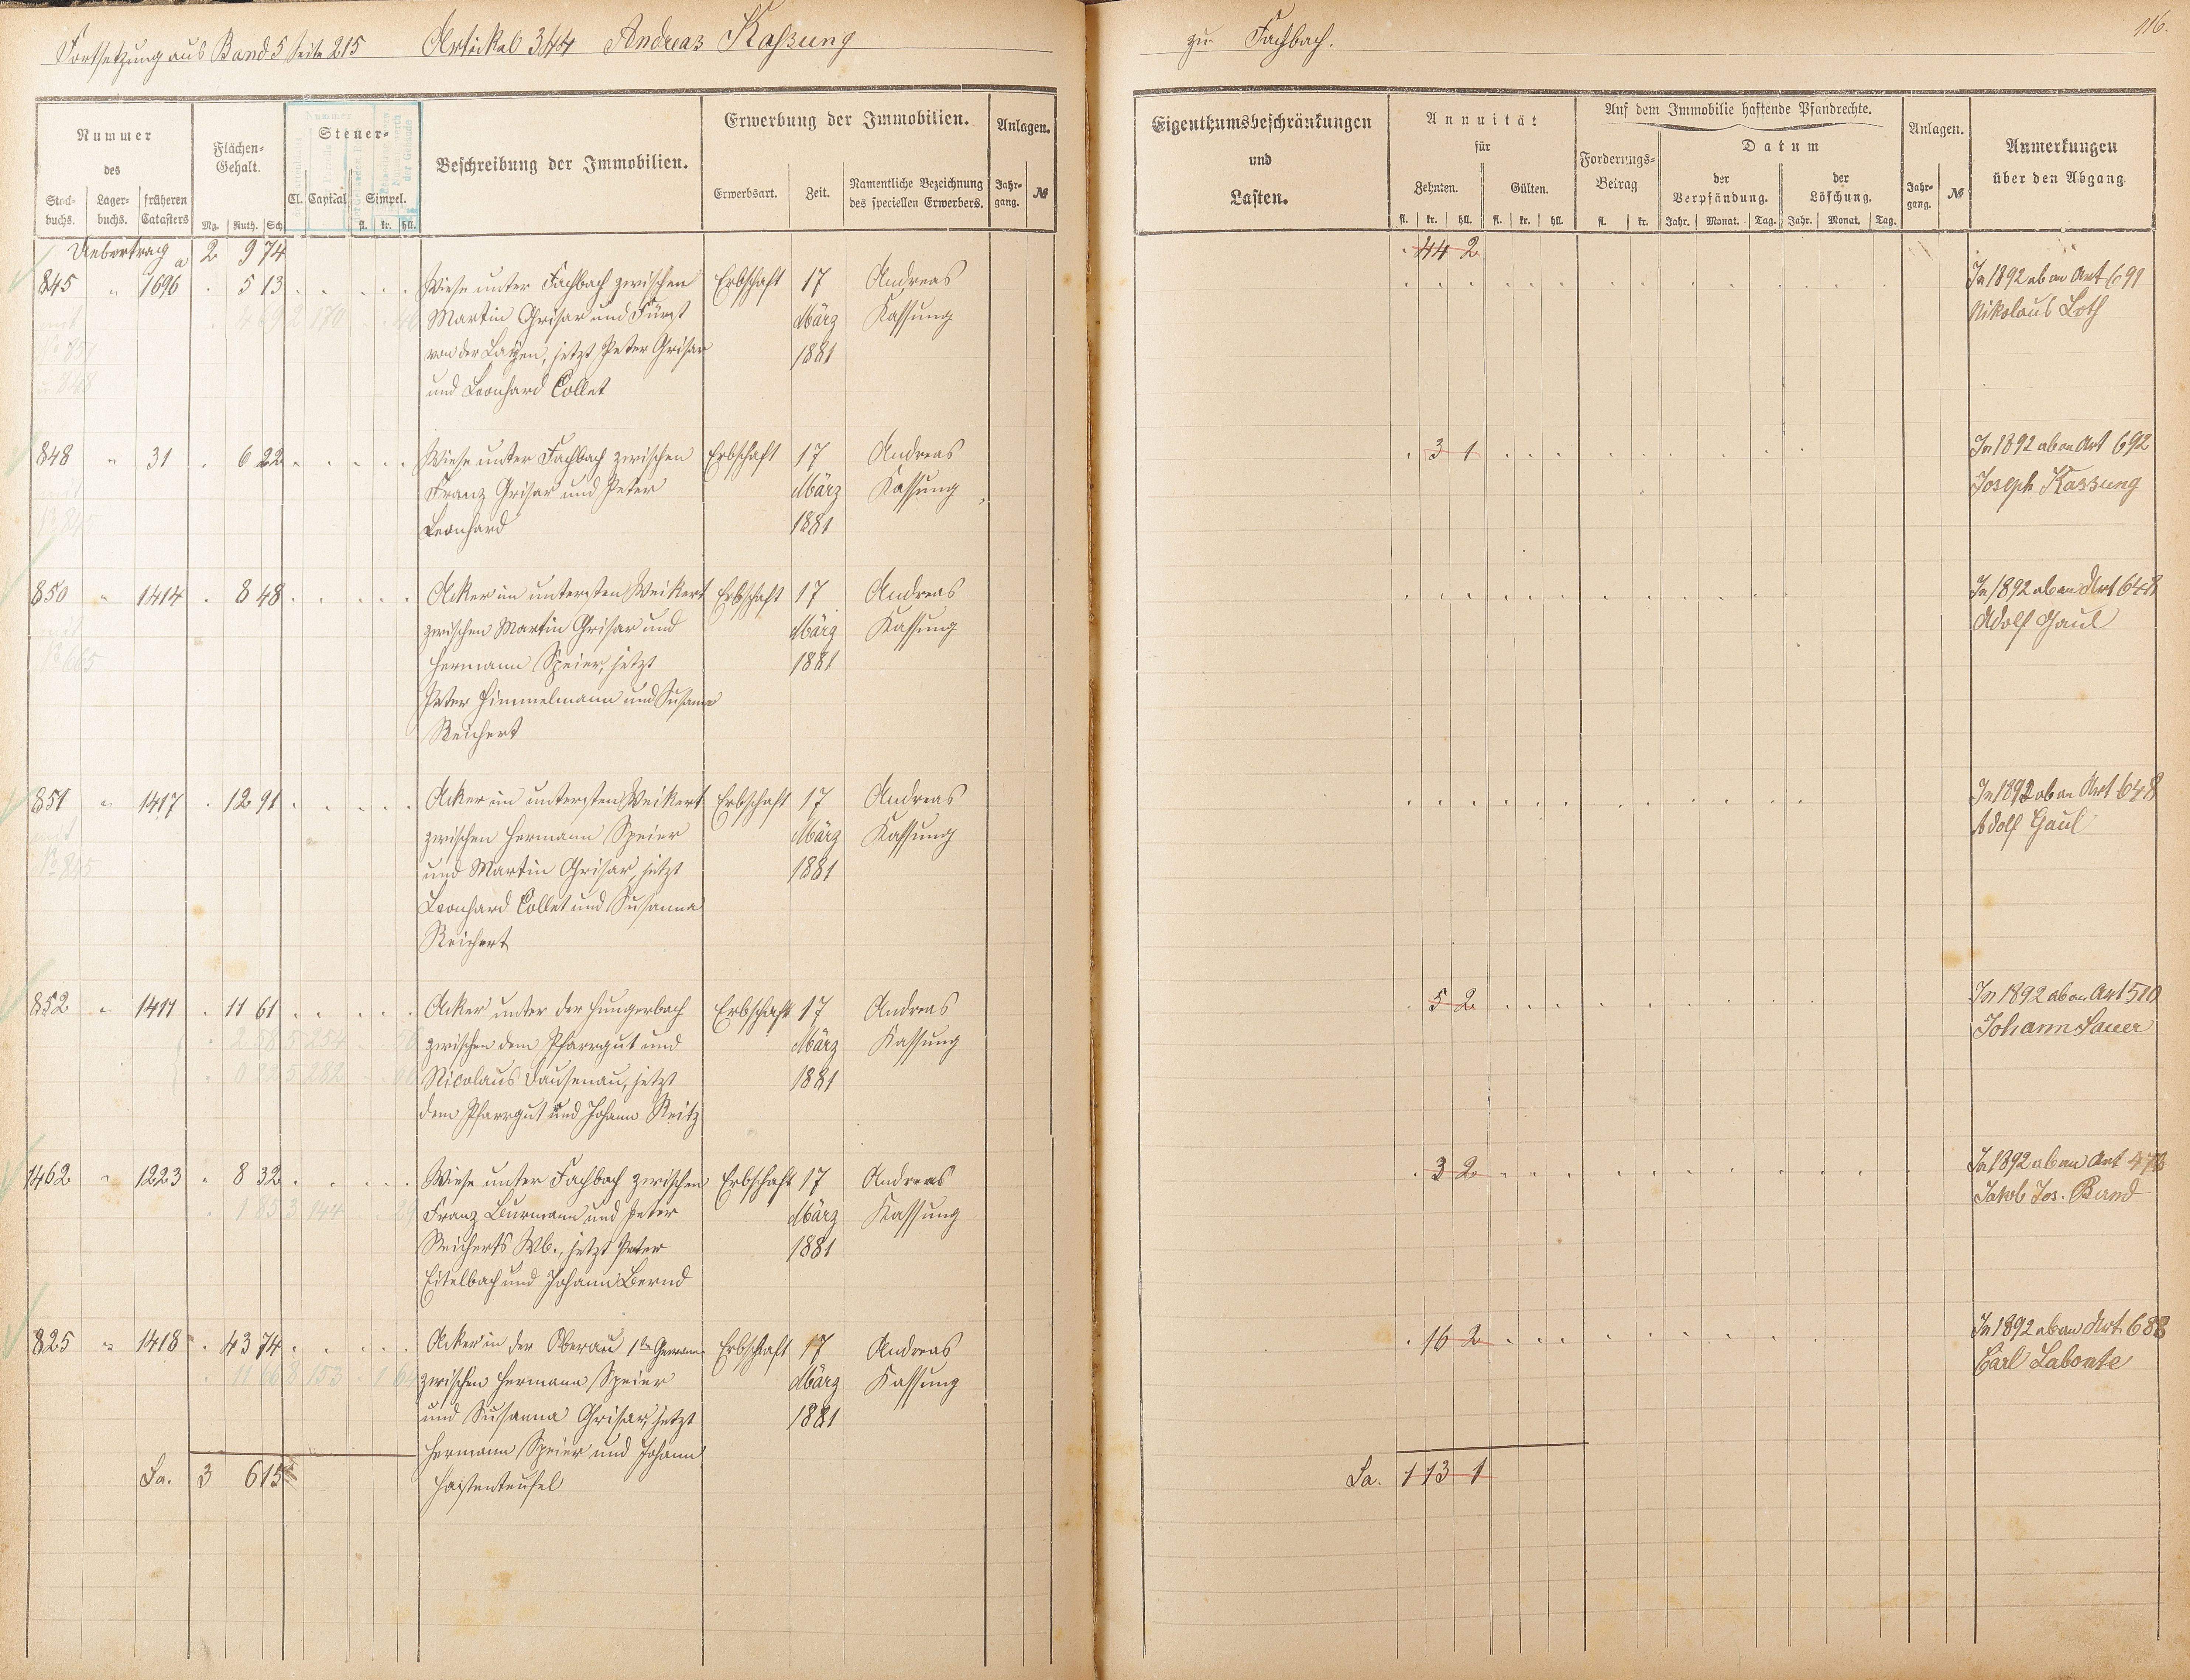 Fortsetzung aus Band 5 Seite 215 Artikel 344 Andreas Kaßung
zu Fachbach.
116.
Nummer
des
Stock-
buchs.
Lager-
buchs.
früheren
Catasters
Flächen-
Gehalt.
Mg. Ruth. Sch
Steuer-
Cl. Capital Simpel.
fl. kr. hll.
Beschreibung der Immobilien.
Erwerbung der Immobilien.
Erwerbsart. Zeit.
Namentliche Bezeichnung
des speciellen Erwerbers.
Anlagen.
Jahr-
gang.
№
Eigenthumsbeschränkungen
und
Lasten.
Annuität
für
Zehnten. Gülten.
fl. kr. hll. fl. kr. hll.
Auf dem Immobilie haftende Pfandrechte.
Forderungs-
Betrag
fl. kr.
Datum
der
Verpfändung.
der
Löschung.
Jahr. Monat. Tag. Jahr. Monat. Tag.
Anlagen.
Jahr-
gang.
№
Anmerkungen
über den Abgang.
Uebertrag 2 9 74 44 2
845 " 1696 . 5 13 Wiese unter Fachbach zwischen Erbschaft 17 Andreas In 1892 ab an Art 691
Martin Grisar und Fürst März Kassung Nikolaus Loth
von der Layen, jetzt Peter Grisar 1881
und Leonhard Collet
848 " 31 . 6 22 Wiese unter Fachbach zwischen Erbschaft 17 Andreas . 3 1 In 1892 ab an Art 692
Franz Grisar und Peter März Kassung Joseph Kassung
Leonhard 1881
850 " 1414 . 8 48 Acker im untersten Weikert Erbschaft 17 Andreas In 1892 ab an Art 648
zwischen Martin Grisar und März Kassung Adolf Gaul
Hermann Speier, jetzt 1881
Peter Himmelmann und Susanna
Reichert
851 " 1417 . 12 91 Acker im untersten Weikert Erbschaft 17 Andreas In 1892 ab an Art 648
zwischen Hermann Speier März Kassung Adolf Gaul
und Martin Grisar, jetzt 1881
Leonhard Collet und Susanna
Reichert
852 " 1411 . 11 61 Acker unter der Hungerbach Erbschaft 17 Andreas 5 2 In 1892 ab an Art 510
zwischen dem Pfarrgut und März Kassung Johann Sauer
Nicolaus Dausenau, jetzt 1881
dem Pfarrgut und Johann Reitz
1462 " 1223 . 8 32 Wiese unter Fachbach zwischen Erbschaft 17 Andreas . 3 2 In 1892 ab an Art
Franz Burmann und Peter März Kassung Jakob Jos. Bernd
Reicherts Wb., jetzt Peter 1881
Eitelbach und Johann Bernd
825 " 1418 . 43 74 Acker in der Oberau 1te Gewann Erbschaft 17 Andreas . 16 2 In 1892 ab an Art. 688
zwischen Hermann Speier März Kassung Carl Labonte
und Susanna Grisar, jetzt 1881
Hermann Speier und Johann
Haistenteufel
Sa. 3 6 15 Sa. 1 13 1